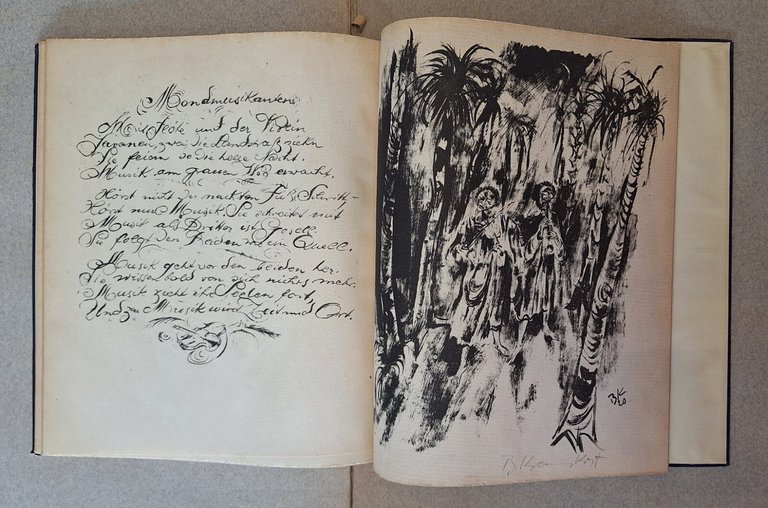 Mondmusikanten
Mit Flöte und der Violin
Javanen, zwei, die Landstraß ziehn
Sie feiern so die helle Nacht.
Musik am grauen Weg erwacht.
Hörst nicht der nackten Füße Schritt-
Hörst nur Musik. Sie schreitet mit
Musik als Dritter ist Gesell.
Sie folgt den Beiden wie ein Quell.
Musik geht vor den beiden her.
Sie wissen bald von sich nichts mehr.
Musik zieht ihre Seelen fort,
Und zu Musik wird Zeit und Ort.
BK
20